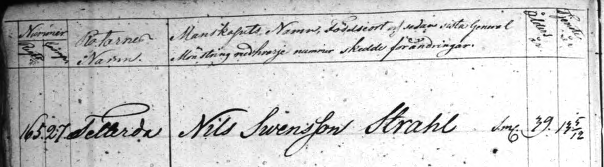 Numer
Rotarnes
Namn.
Manskapets Namn, Födelseort och sedan sista General
Mönstring vid hvarje nummer skedde förändringar.
ålder
år
165. 27. Tellerda Nils Swensson Strahl Sm. 39. 13 5/12